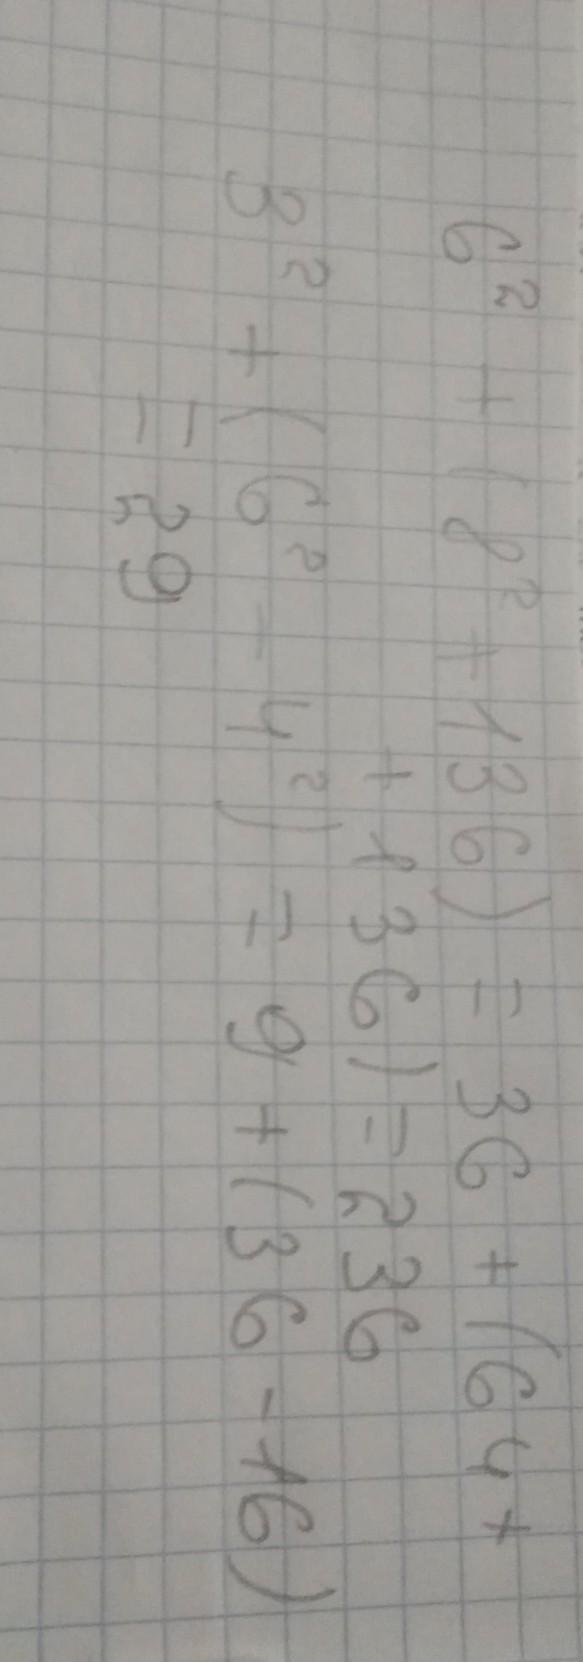 6² + (8² + 136) = 36 + (64 +
+ 136) = 236
3² + (6² - 4²) = 9 + (36 - 16)
= 29